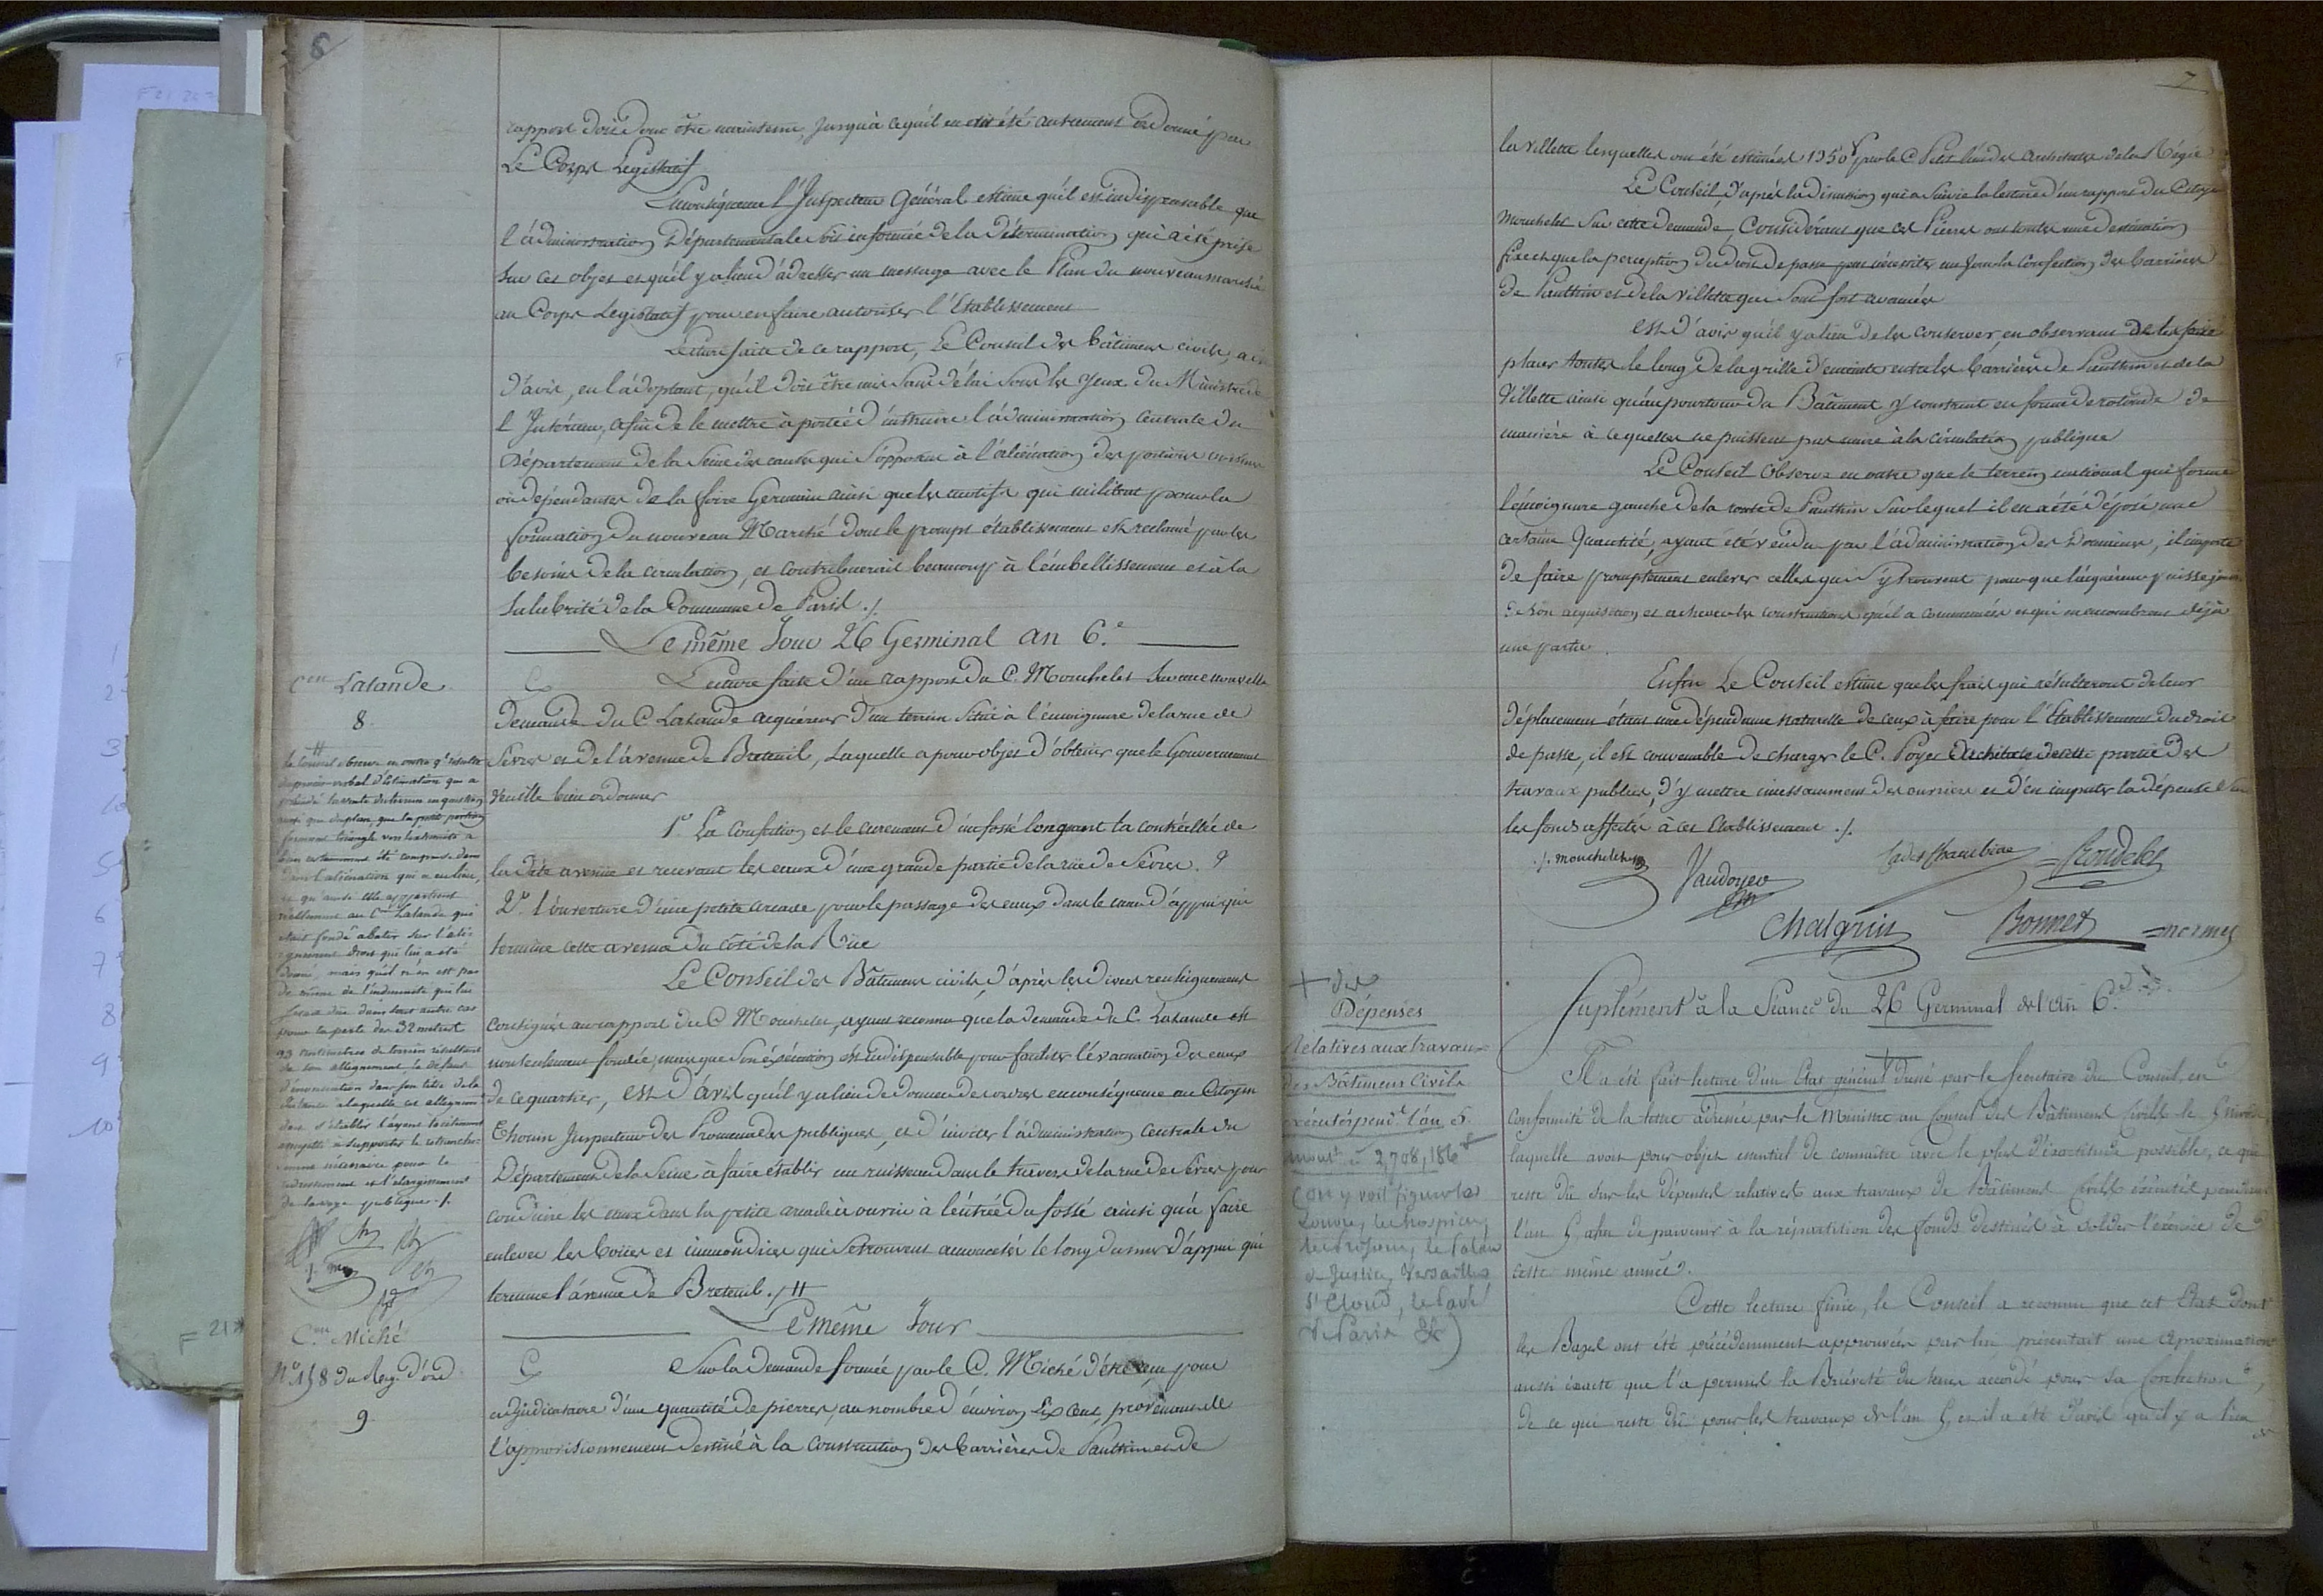 6
rapport doit donc être maintenu, jusqu'à ce qu'il en ait été autrement ordonné par
Le Corps Legislatif
En conséquence l'Inspecteur Général estime qu'il est indispensable que
l'administration Départementale soit informée de la détermination qui a été prise
sur cet objet et qu'il y a lieu d'adresser un message avec le Plan du nouveau marché
au Corps Legislatif pour en faire autoriser l'Etablissement
Lecture faite de ce rapport, Le Conseil des Bâtimens civils, a été
d'avis, en l'adoptant, qu'il doit être mis sans délai sous les yeux du Ministre de
l'Intérieur, afin de le mettre à portée d'instruire l'administration centrale du
Département de la Seine des causes qui s'opposent à l'aliénation des portions
ou dépendances de la foire Germain ainsi que les motifs qui militent pour la
formation du nouveau Marché dont le prompt établissement est reclamé par les
besoins de la circulation, et contribuerait beaucoup à l'embellissement et à la
salubrité de la Commune de Paris ./.
Le même Jour 26 Germinal an 6.e
C.en Lalande
8.
Lecture faite d'un rapport du C. Mouchelet sur une nouvelle
demande du C. Lalande acquéreur d'un terrein situé à l'encoignure de la rue de
Sèvres et de l'avenue de Breteuil, laquelle a pour objet d'obtenir que le Gouvernement
veuille bien ordonner
1.o La confection et le curement d'un fossé longeant la contreallée de
la dite avenue et recevant les eaux d'une grande partie de la rüe de Sèvres. &
2.o l'ouverture d'une petite arcade pour le passage des eaux dans le mur d'appui qui
termine cette avenue du côté de la Rüe
Le Conseil des Bâtimens civils, d'après les divers renseignemens
consignés au rapport du C. Mouchelet, ayant reconnu que la demande du C. Lalande est
non seulement fondée, mais que son éxécution est indispensable pour faciliter l'évacuation des eaux
de ce quartier, est d'avis qu'il y a lieu de donner des ordres en conséquence au Citoyen
Thouin Inspecteur des Promenades publiques, et d'inviter l'administration Centrale du
Département de la Seine à faire établir un ruisseau dans le travers de la rue de Sèvres pour
conduire les eaux dans la petite arcade à ouvrir à l'entrée du fossé ainsi qu'à faire
enlever les boües et immondices qui se trouvent amoncelés le long du mur d'appui qui
termine l'avenue de Breteuil ./. #
#
Le Conseil observe en outre q.e résulte
du procès-verbal d'estimation qui a
précédé la vente du terrein en question
ainsi que du plan, que la petite portion
formant triangle vers l'extrémité a
bien certainement été comprise dans
dans l'aliénation qui a eu lieu,
et qu'ainsi elle appartient
réellement au C.en Lalande qui
était fondé à bâtir sur l'ali-
gnement droit qui lui a été
donné, mais qu'il n'en est pas
de même de l'indemnité qui lui
serait due dans tout autre cas
pour la perte des 32 metres
93 centimetres de terrein résultant
de son allignement, le défaut
d'énonciation dans son titre de la
distance à laquelle cet allignement
doit s'établir l'ayant tacitement
assujetti à supporter le retranche-
ment nécessaire pour le
redressement et l'élargissement
de la voye publique ./.
Le même Jour
C.en Miché
N.o 158 du Reg. d'ord
9.
Sur la demande formée par le C. Miché d'être reçu pour
adjudicataire d'une quantité de pierres, au nombre d'environ six cent, provenans de
l'approvisionnement destiné à la construction des barrières de Panthin et de
7
la villette lesquelles ont été estimées 1950 f par le C. Petit l'un des Architectes de la Régie
Le Conseil, d'après la discussion qui a suivie la lecture d'un rapport du Citoyen
Mouchelet sur cette demande, Considérant que ces Pierres ont toutes une destination
fixe et que la perception du droit de passe peut nécessiter un jour la confection des barrières
de Panthin et de la villette qui sont fort avancées
est d'avis qu'il y a lieu de les conserver en observant de les faire
placer toutes le long de la grille d'enceinte entre les barrières de Panthin et de la
Villette ainsi qu'au pourtour du Bâtiment y construit en forme de rotonde de
manière à ce quelles ne puissent pas nuire à la circulation publique
Le Conseil observe en outre que le terrein national qui forme
l'encoignure gauche de la route de Panthin sur lequel il en a été déposé une
certaine quantité, ayant été vendu par l'administration des Domaines, il importe
de faire promptement enlever celles qui s'y trouvent pour que l'acquéreur puisse jouir
de son acquisition et achever les constructions qu'il a commencées et qui en encombrent déjà
une partie.
Enfin Le Conseil estime que les frais qui résulteront de leur
déplacement étant une dépendance naturelle de ceux à faire pour l'Etablissement du droit
de passe, il est convenable de charger le C. Poyet Architecte de cette partie des
travaux publics, d'y mettre incessamment des ouvriers et d'en imputer la dépense sur
les fonds affectés à cet Etablissement ./.
./. Mouchelet
Vaudoyer
Cadet Chambine
Rondelet
Chalgrin
Bonnet
Norma
Suplément à la Séance du 26 Germinal de l'an 6.
Il a été fait lecture d'un Etat général + dressé par le Secretaire du Conseil, en
conformité de la lettre adressée par le Ministre au Conseil des Bâtimens Civils le 5 nivôse
laquelle avoit pour objet essentiel de connaître avec le plus d'exactitude possible, ce qui
reste dû sur les dépenses relatives aux travaux de Bâtimens Civils éxécutés pendant
l'an 5, afin de parvenir à la répartition des fonds destinés à solder l'exercice de
cette même année.
Cette lecture finie, le Conseil a reconnu que cet Etat dont
les Bases ont été précédemment approuvées par lui présentait une aproximation
aussi éxacte que l'a permis la Brièveté du tems accordé pour sa Confection,
de ce que reste dû pour les travaux de l'an 5, et il a été d'avis qu'il y a lieu
+ des
Dépenses
Relatives aux travaux
des Bâtimens Civils
exécutés pend.t l'an 5.
mont.t à 2,708,186 f
(on y voit figurer le
Louvre, les hospices,
les Prisons, le Palais
de Justice, Versailles
S.t Cloud, le Pavé
de Paris &c)
F 21*